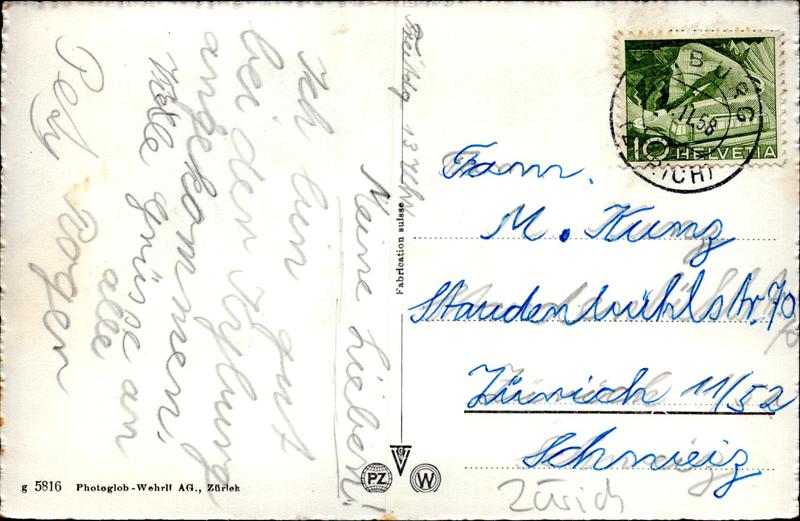 Freitag 13 Uhr
Meine Lieben!
Ich bin gut
bei der Kyburg
angekommen.
Viele Grüsse an
alle
Roger
Fabrication suisse
BURG
.II.58
(ZÜRICH)
10 HELVETIA
Fam.
M. Kunz
Staudenbühlstr. 70
Zürich 11/52
Schweiz
Zürich
PZ
W
g 5816 Photoglob-Wehrli AG., Zürich